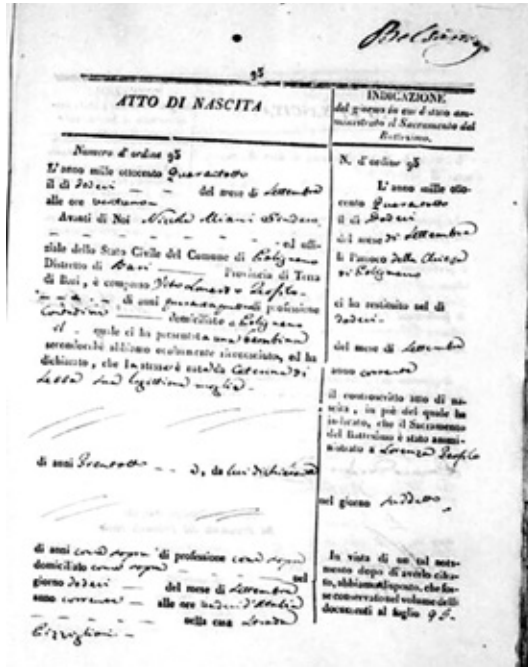 95
ATTO DI NASCITA
Numero d'ordine 95
L'anno mille ottocento Quarantotto
il di dodeci del mese di Settembre
alle ore ventuno
Avanti di Noi Nicola Miani Sindaco
ed uffi-
ziale dello Stato Civile del Comune di Polignano
Distretto di Bari Provincia di Terra
di Bari, è comparso Vito Teofilo
di anni di professione
Contadino domiciliato Polignano
il quale ci ha presentata una bambina
secondocchè abbiamo ocularmente riconosciuto, ed ha
dichiarato, che la stessa è nata da Caterina di
sua legittima moglie
di anni Trentotto da lui dichiarante
di anni come sopra di professione come sopra
domiciliato come sopra nel
giorno dodeci del mese di Settembre
anno corrente alle ore d'Italia
nella casa
INDICAZIONE
del giorno in cui è stato am-
ministrato il Sacramento del
Battesimo.
N. d'ordine 95
L'anno mille otto-
cento Quarantotto
il di dodeci
del mese di Settembre
il Parroco della Chiesa
di Polignano
ci ha restituito nel di
dodeci
del mese di Settembre
anno corrente
il controscritto atto di na-
scita, in piè del quale ha
indicato, che il Sacramento
del Battesimo è stato ammi-
nistrato a Lorenza Teofilo
nel giorno suddetto
In vista di un tal noti-
mento dopo di averlo cifra-
to, abbiamo disposto, che fos-
se conservato nel volume delli
documenti al foglio 95.